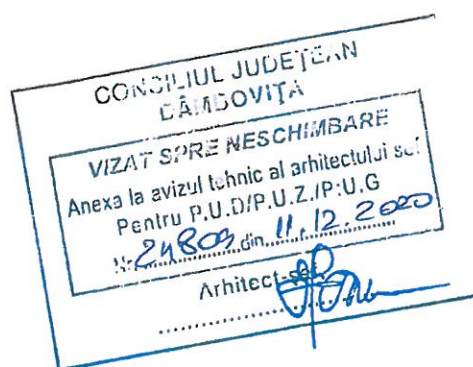 CONSILIUL JUDEŢEAN
DÂMBOVIŢA
VIZAT SPRE NESCHIMBARE
Anexa la avizul tehnic al arhitectului şef
Pentru P.U.D/P.U.Z./P.U.G
Nr. 24809 din 11.12.2020
Arhitect-şef